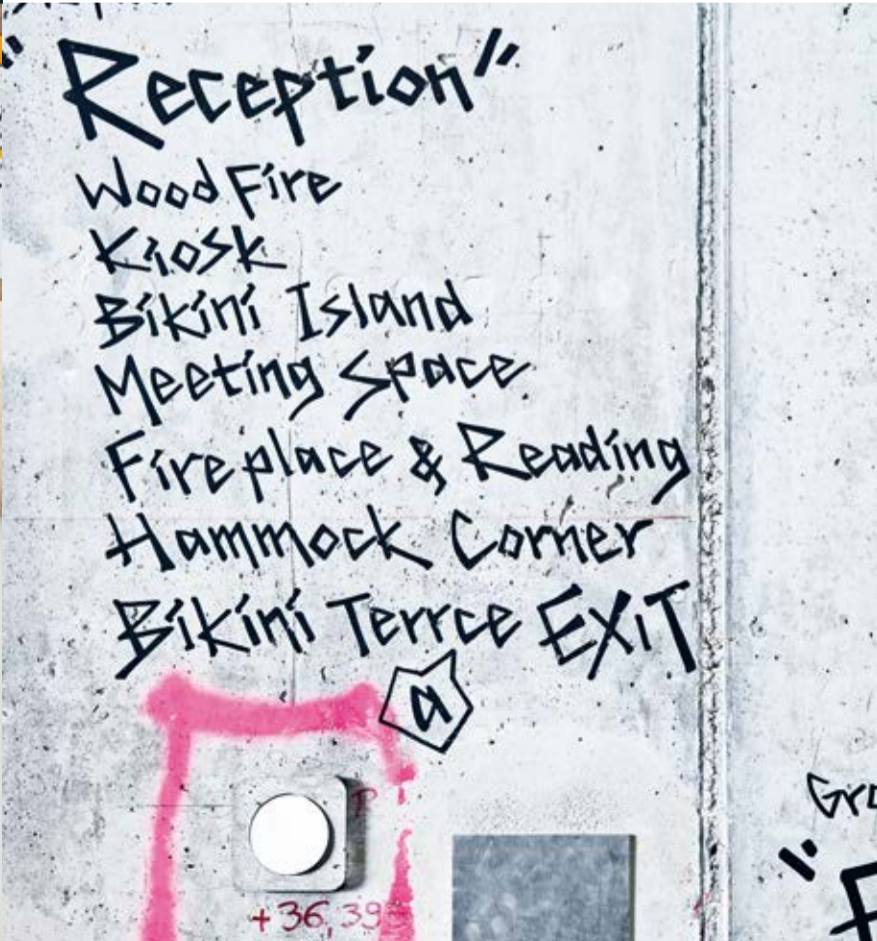 Reception"
Wood Fire
Kiosk
Bikini Island
Meeting Space
Fireplace & Reading
Hammock Corner
Bikini Terrce EXiT
a
P
+36,39